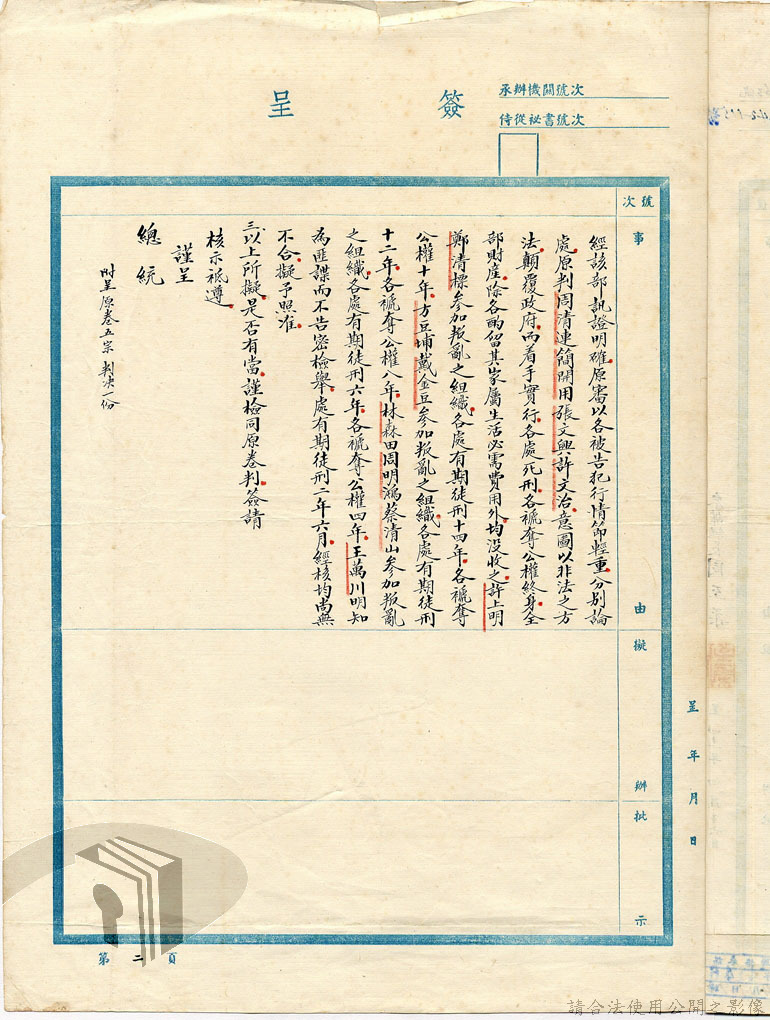 簽呈
承辦機關號次
侍從祕書號次
號次
事由
擬辦
批示
經該部訊證明確原審以各被告犯行情節輕重分別論
處原判周清連簡開用張文興許文治意圖以非法之方
法顛覆政府而着手實行各處死刑各褫奪公權終身全
部財產除各酌留其家屬生活必需費用外均沒收之許上明
鄭清標參加叛亂之組織各處有期徒刑十四年各褫奪
公權十年方豆埔戴金豆參加叛亂之組織各處有期徒刑
十二年各褫奪公權八年林森田周明鴻蔡清山參加叛亂
之組織各處有期徒刑六年各褫奪公權四年王萬川明知
為匪諜而不告密檢舉處有期徒刑二年六月經核均尚無
不合擬予照准
三以上所擬是否有當謹檢同原卷判簽請
核示祗遵
謹呈
總統
附呈原卷五宗判決一份
呈年月日
第二頁
請合法使用公開之影像